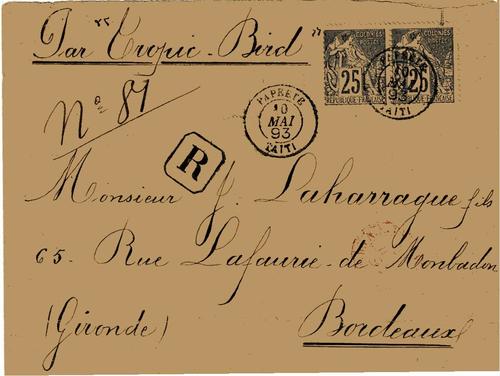 "Par Tropic-Bird"
COLONIES
POSTES
25
RÉPUBLIQUE FRANÇAISE
COLONIES
POSTES
25
Nº 81
PAPEETE
10
MAI
93
TAITI
PAPEETE
MAI
93
TAITI
R
Monsieur J. Laharrague fils
65. Rue Lafaurie-de-Monbadon
(Gironde) Bordeaux